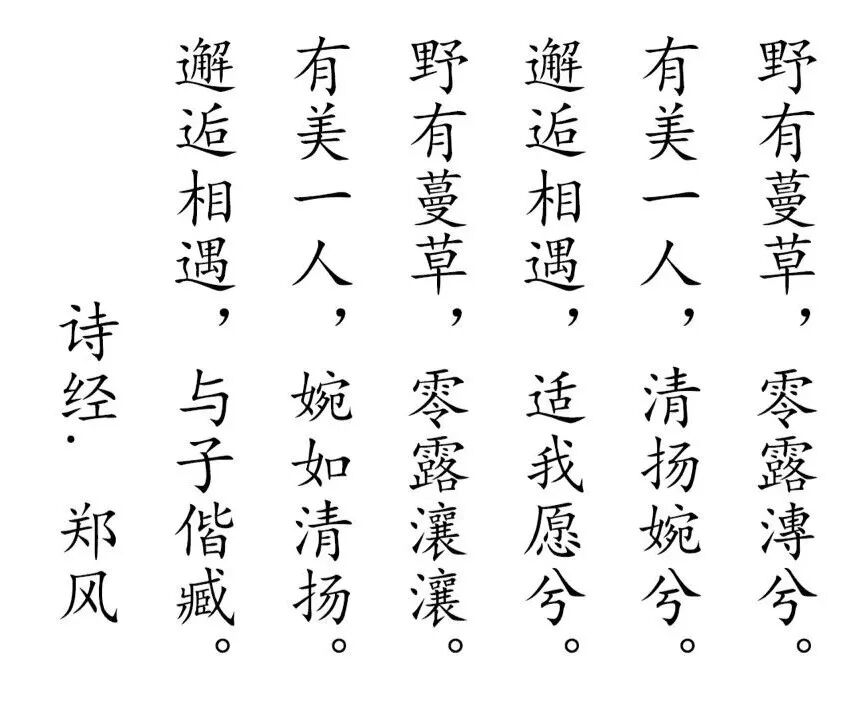 野有蔓草，零露漙兮。
有美一人，清扬婉兮。
邂逅相遇，适我愿兮。
野有蔓草，零露瀼瀼。
有美一人，婉如清扬。
邂逅相遇，与子偕臧。
诗经·郑风